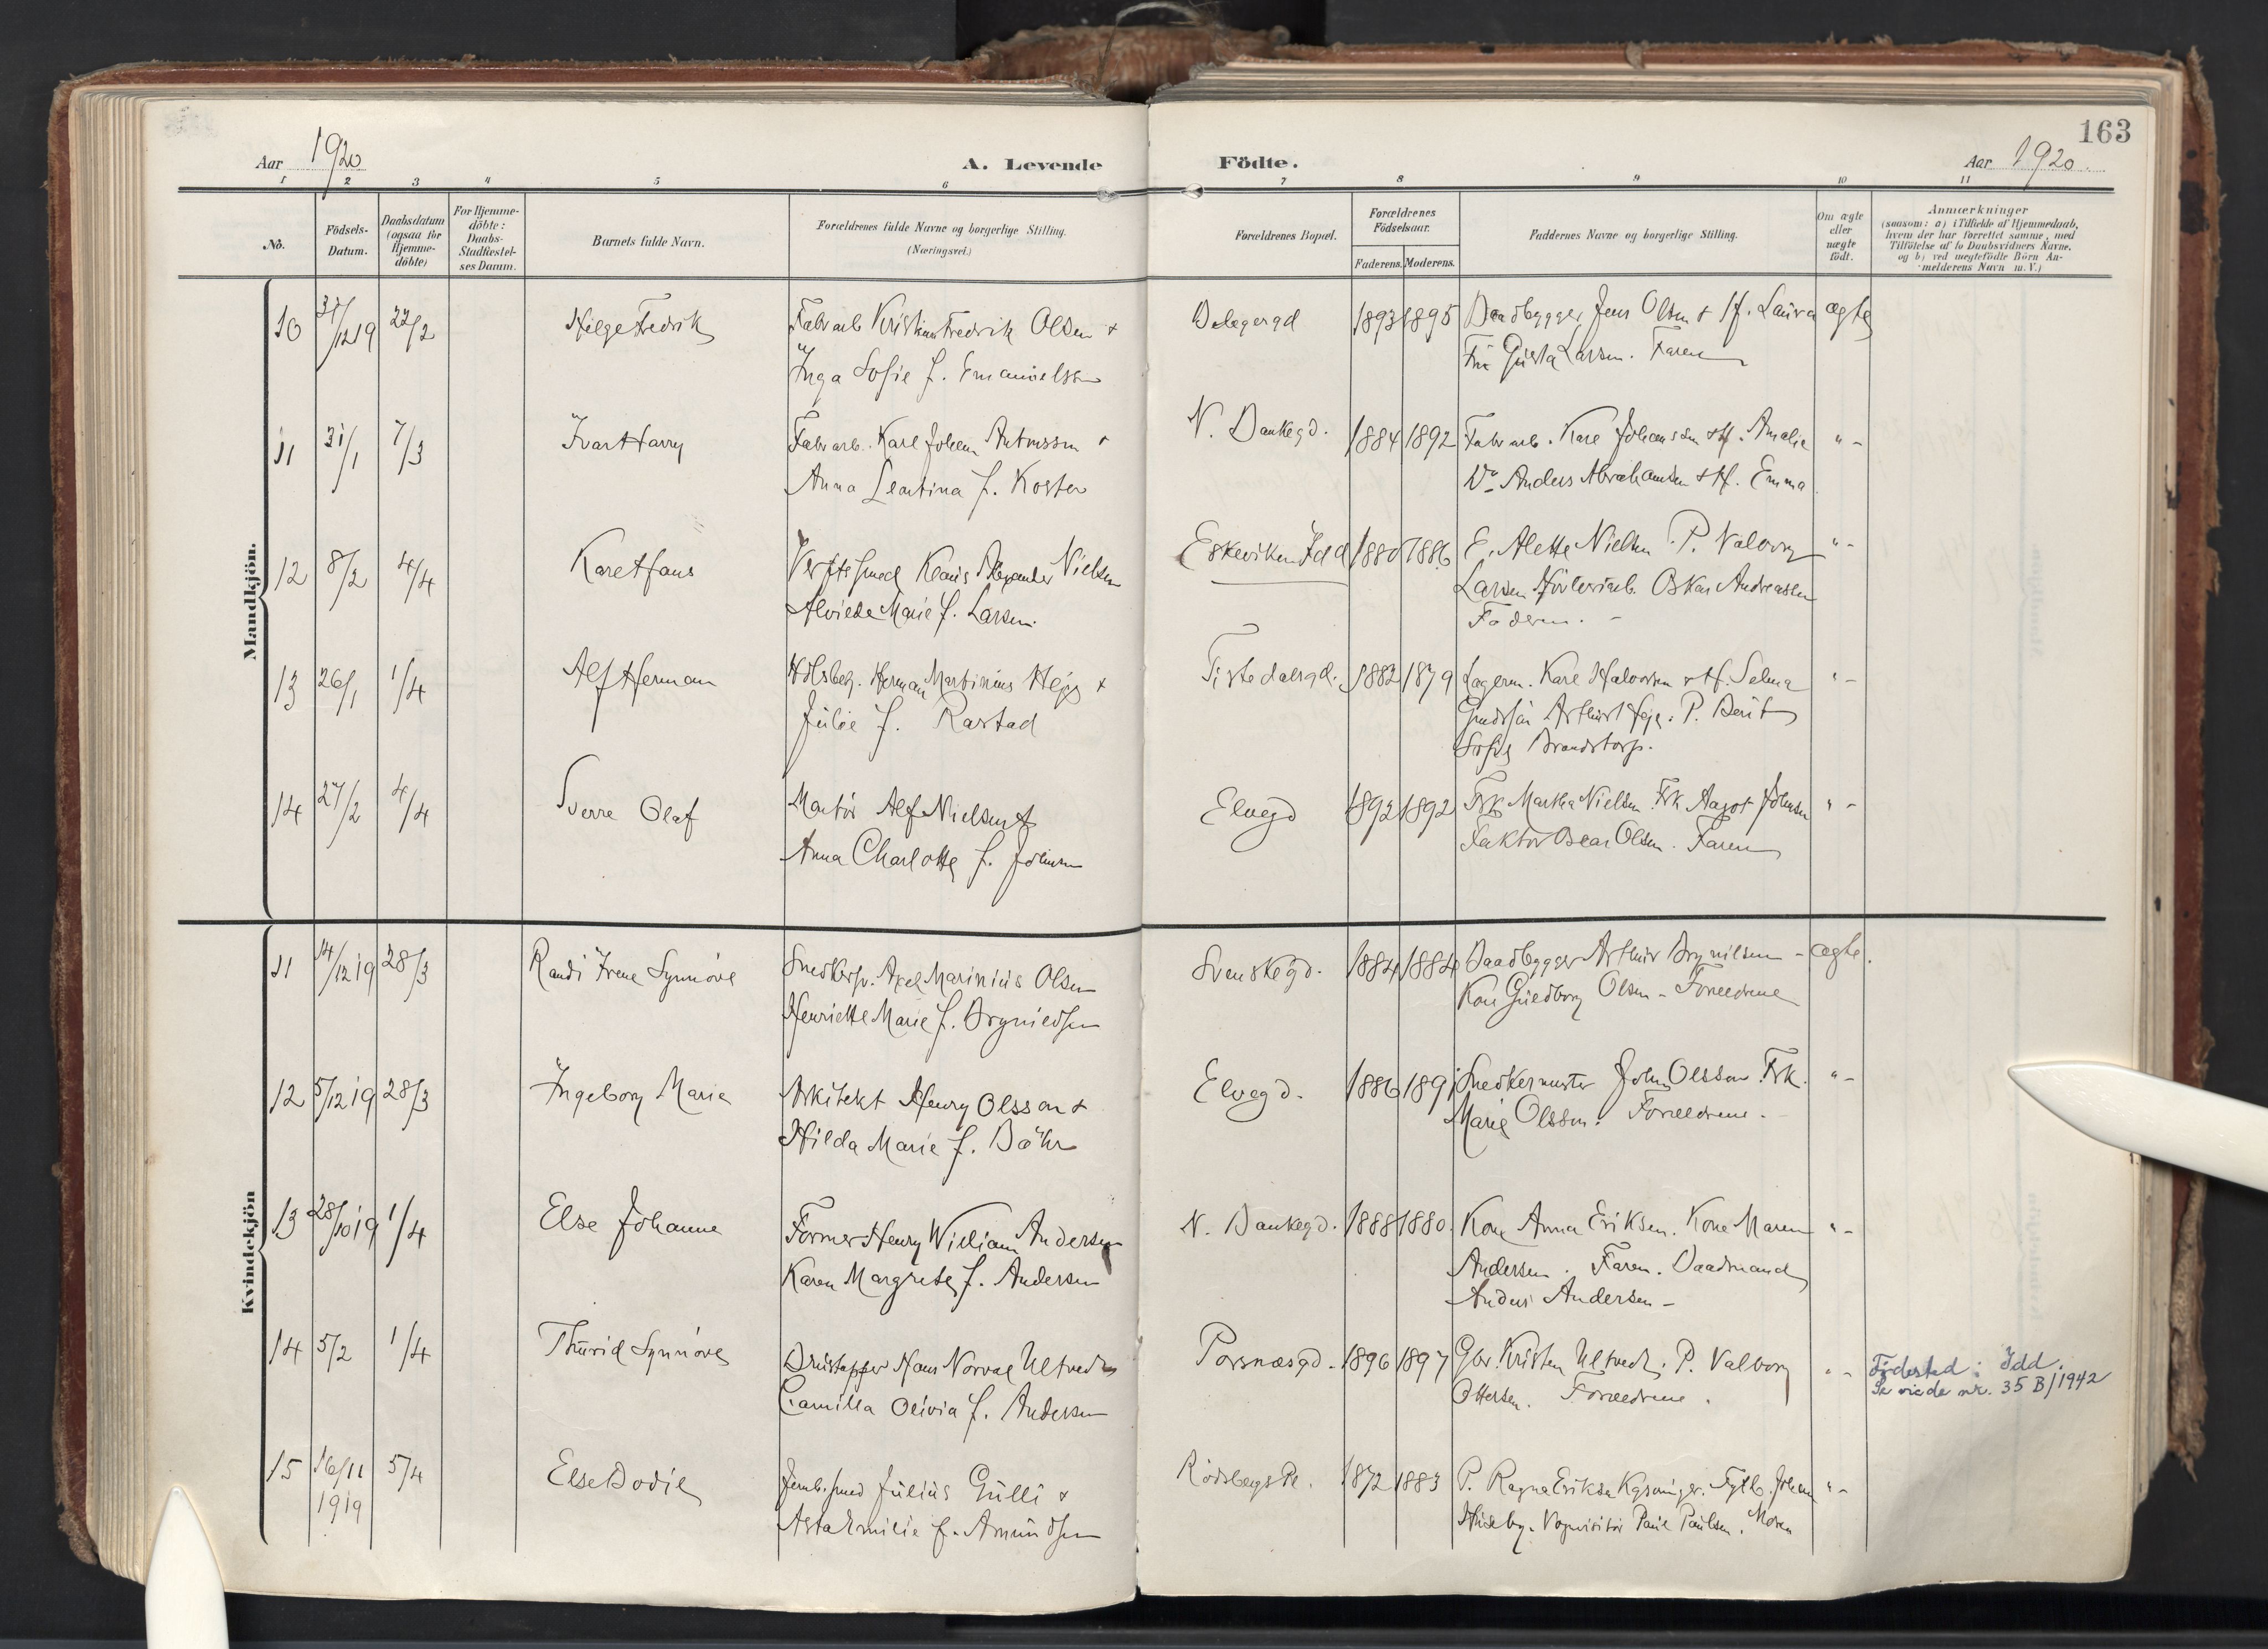 163
Aar 1920
A. Levende
Födte.
Aar 1920.
1 2 3 4 5 6 7 8 9 10 11
No.
Födsels-
Datum.
Daabsdatum
(ogsaa for
Hjemme-
döbte)
For Hjemme-
döbte:
Daabs-
Stadfæstel-
ses Datum.
Barnets fulde Navn.
Forældrenes fulde Navne og borgerlige Stilling.
(Næringsvei.)
Forældrenes Bopæl.
Forældrenes
Födselsaar.
Faderens. Moderens.
Faddernes Navne og borgerlige Stilling.
Om ægte
eller
uægte
födt.
Anmærkninger
(saasom: a) i Tilfælde af Hjemmedaab,
hvem der har forrettet samme, med
Tilföielse af to Daabsvidners Navne,
og b) ved uægtefödte Börn An-
melderens Navn m. V.)
Mandkjön.
10 31/12 19 22/2 Helge Fredrik Fabrarb Kristian Fredrik Olsen + 1893 1895 Baadbygger Jens Olsen + H. Laura ægte
Inga Sofie f. Emanuelsen Fru Gusta Larsen. Faren
11 31/1 7/3 Ivar Harry Fabrarb. Karl Johan Antonssen + N. Bankegd. 1884 1892 Fabrarb. Karl Johanssen + H. Amalie "-
Anna Leontina f. Koster Do Anders Abrahamsen + H. Emma
12 8/2 4/4 Kare Hans Verftssmed Klaus Alexander Nielsen Eskeviken Idd 1880 1886 E. Alette Nielsen. P. Valborg "-
Marie f. Larsen. Larsen Oskar Andreassen
Faderen. -
13 26/1 1/4 Alf Herman Herman Martinius + Tistedalsgd. 1882 1879 Lagerm. Karl Halvorsen + H. Selma "-
Julie f. Rastad P. Berit
Brandstorp.
14 27/2 4/4 Sverre Olaf Montör Alf Nielsen + Elvegd 1892 1892 Frk Martha Nielsen. Frk Aagot Johnsen "-
Anna Charlotte f. Johnsen Faktor Oscar Olsen. Faren
Kvindekjön
11 14/12 19 28/3 Randi Irene Synnöve Snedkersv. Axel Marinius Olsen Svenskegd. 1884 1884 Baadbygger Arthur Brynildsen - ægte.
Henriette Marie f. Brynildsen Kone Guldborg Olsen - Forældrene
12 5/12 19 28/3 Ingeborg Marie Arkitekt Henry Olsson + Elvegd. 1886 1891 Snedkermester John Olsson. Frk. "-
Hilda Marie f. Bähr Marie Olsson. Forældrene.
13 28/10 19 1/4 Else Johanne Former Henry William Andersen N. Bankegd. 1888 1880. Kone Anna Eriksen. Kone Maren "-
Karen Margrete f. Andersen Andersen. Faren. Baadmand
Andersen -
14 5/2 1/4 Thurid Synnöve Hans Norval Ultvedt Porsnæsgd. 1896 1897 Gbr. Kristen Ultvedt. P. Valborg "- Födested: Idd.
Camilla Olivia f. Andersen Ottersen. Forældrene. Se vigde nr. 35 B/1942
15 16/11 5/4 Else Bodil Jernb.smed Julius Gulli + Rödsbergs Pl. 1872 1883 P. Ragna Eriksen Fyrb. Johan "-
1919 Asta Emilie f. Amundsen Paul Paulsen. Moren